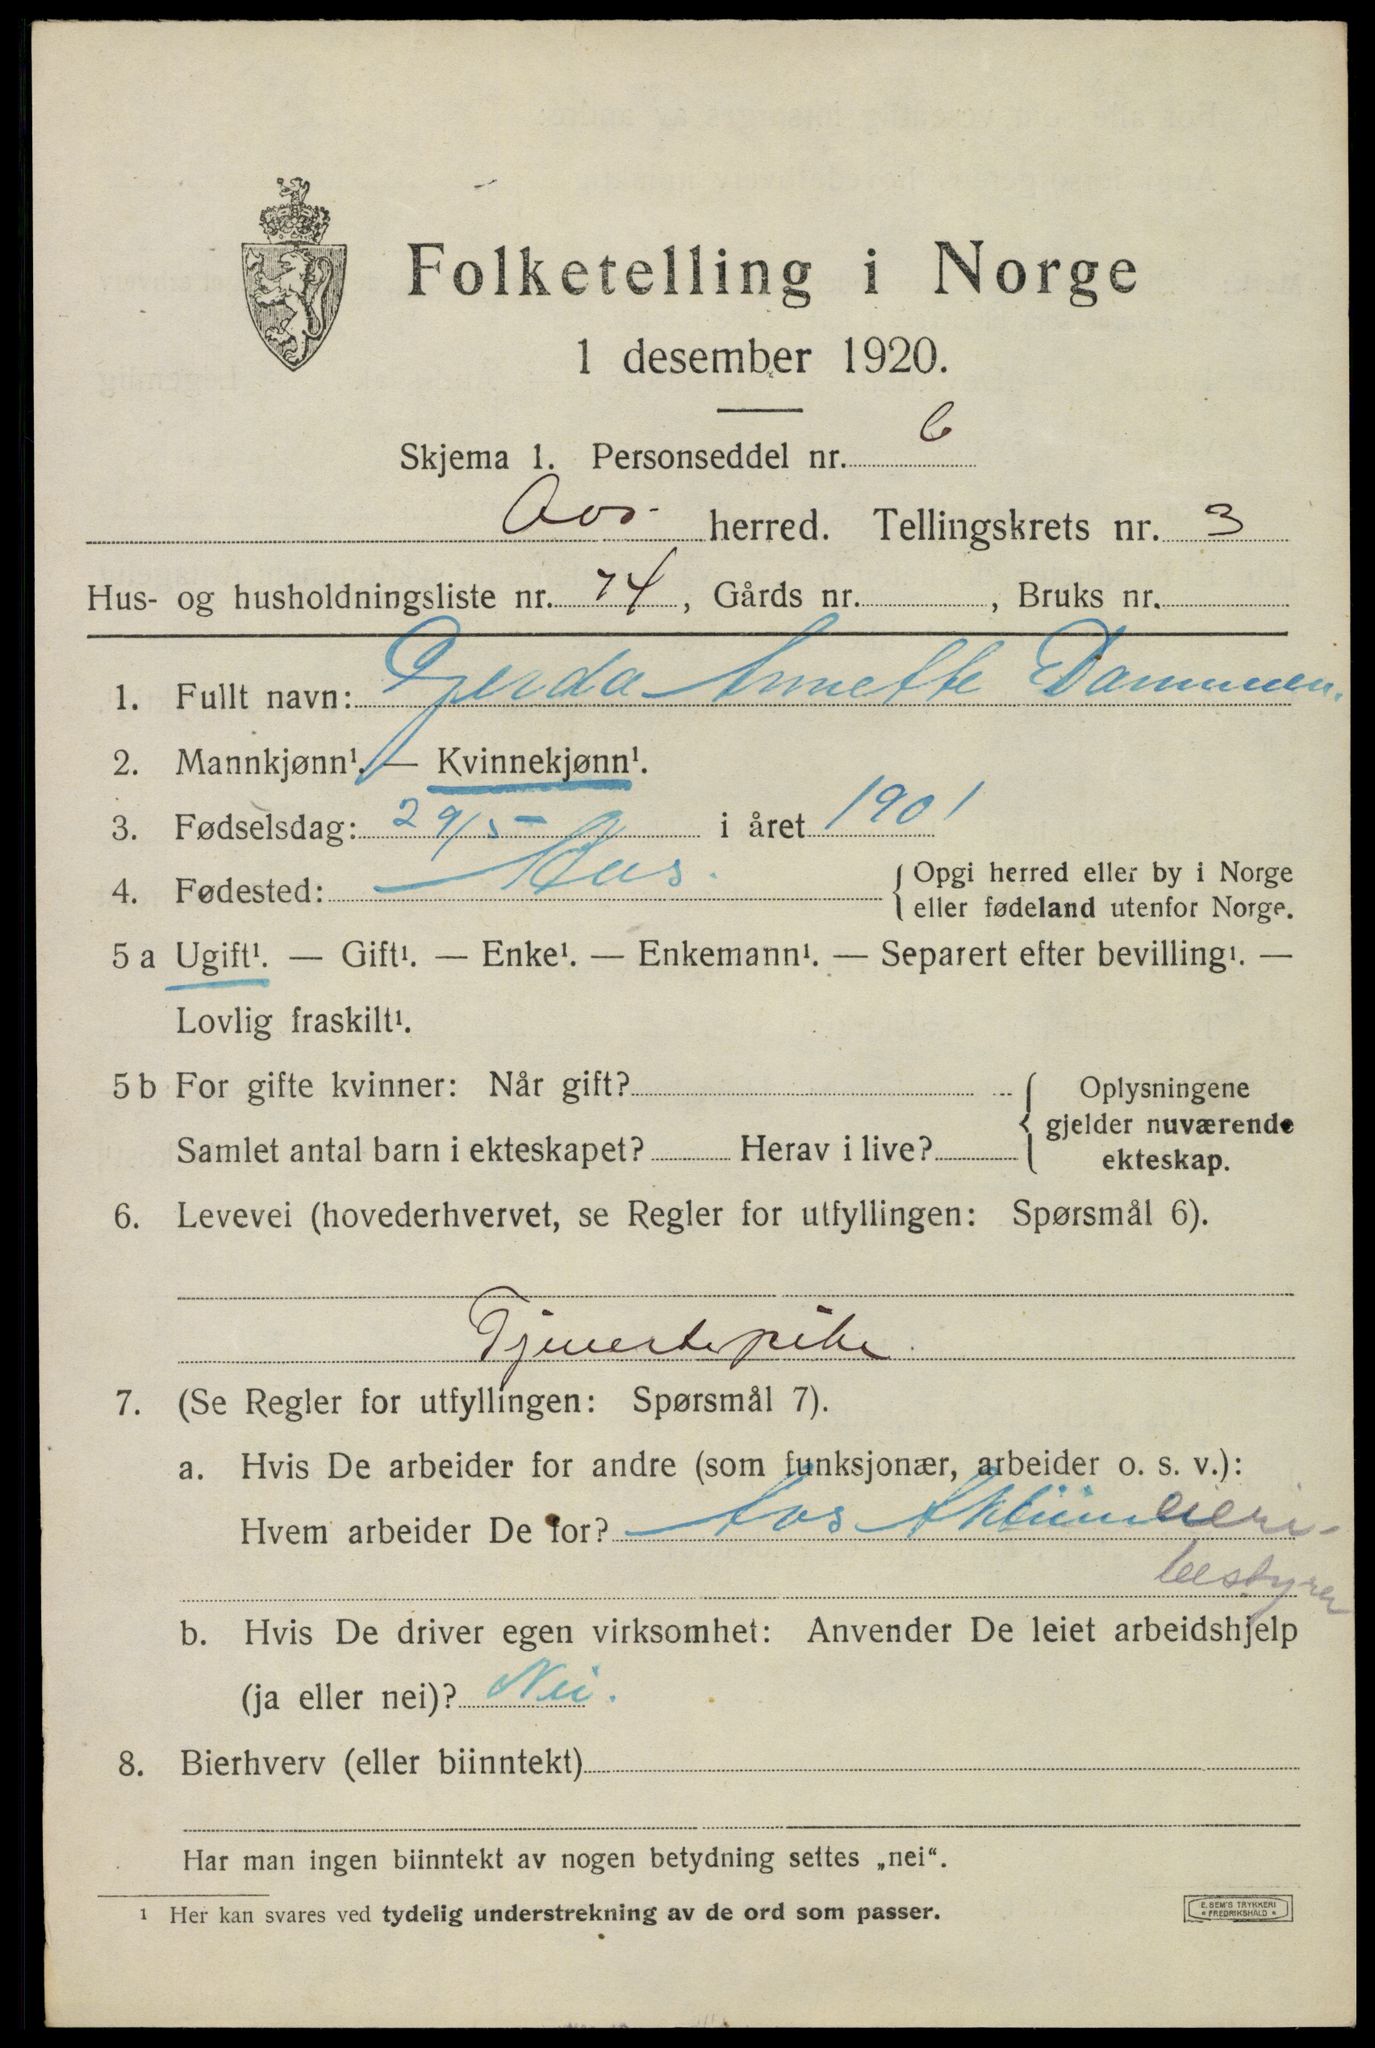 Folketelling i Norge
1 desember 1920.
Skjema 1. Personseddel nr. 6
Aas herred. Tellingskrets nr. 3
Hus- og husholdningsliste nr. 74, Gårds nr. , Bruks nr.
1. Fullt navn: Gjerda Annette Dammen.
2. Mannkjønn¹. — Kvinnekjønn¹.
3. Fødselsdag: 29/5 - i året 1901
4. Fødested: Aas. { Opgi herred eller by i Norge
eller fødeland utenfor Norge.
5 a Ugift¹. — Gift¹. — Enke¹. — Enkemann¹. — Separert efter bevilling¹. —
Lovlig fraskilt¹.
5 b For gifte kvinner: Når gift? { Oplysningene
gjelder nuværende
Samlet antal barn i ekteskapet? Herav i live? ekteskap.
6. Levevei (hovederhvervet, se Regler for utfyllingen: Spørsmål 6).
Tjenestepike.
7. (Se Regler for utfyllingen: Spørsmål 7).
a. Hvis De arbeider for andre (som funksjonær, arbeider o. s. v.):
Hvem arbeider De for? Aas
bestyrer
b. Hvis De driver egen virksomhet: Anvender De leiet arbeidshjelp
(ja eller nei)? Nei.
8. Bierhverv (eller biinntekt)
Har man ingen biinntekt av nogen betydning settes „nei“.
¹ Her kan svares ved tydelig understrekning av de ord som passer.
E. SEM'S TRYKKERI
* FREDRIKSHALD *